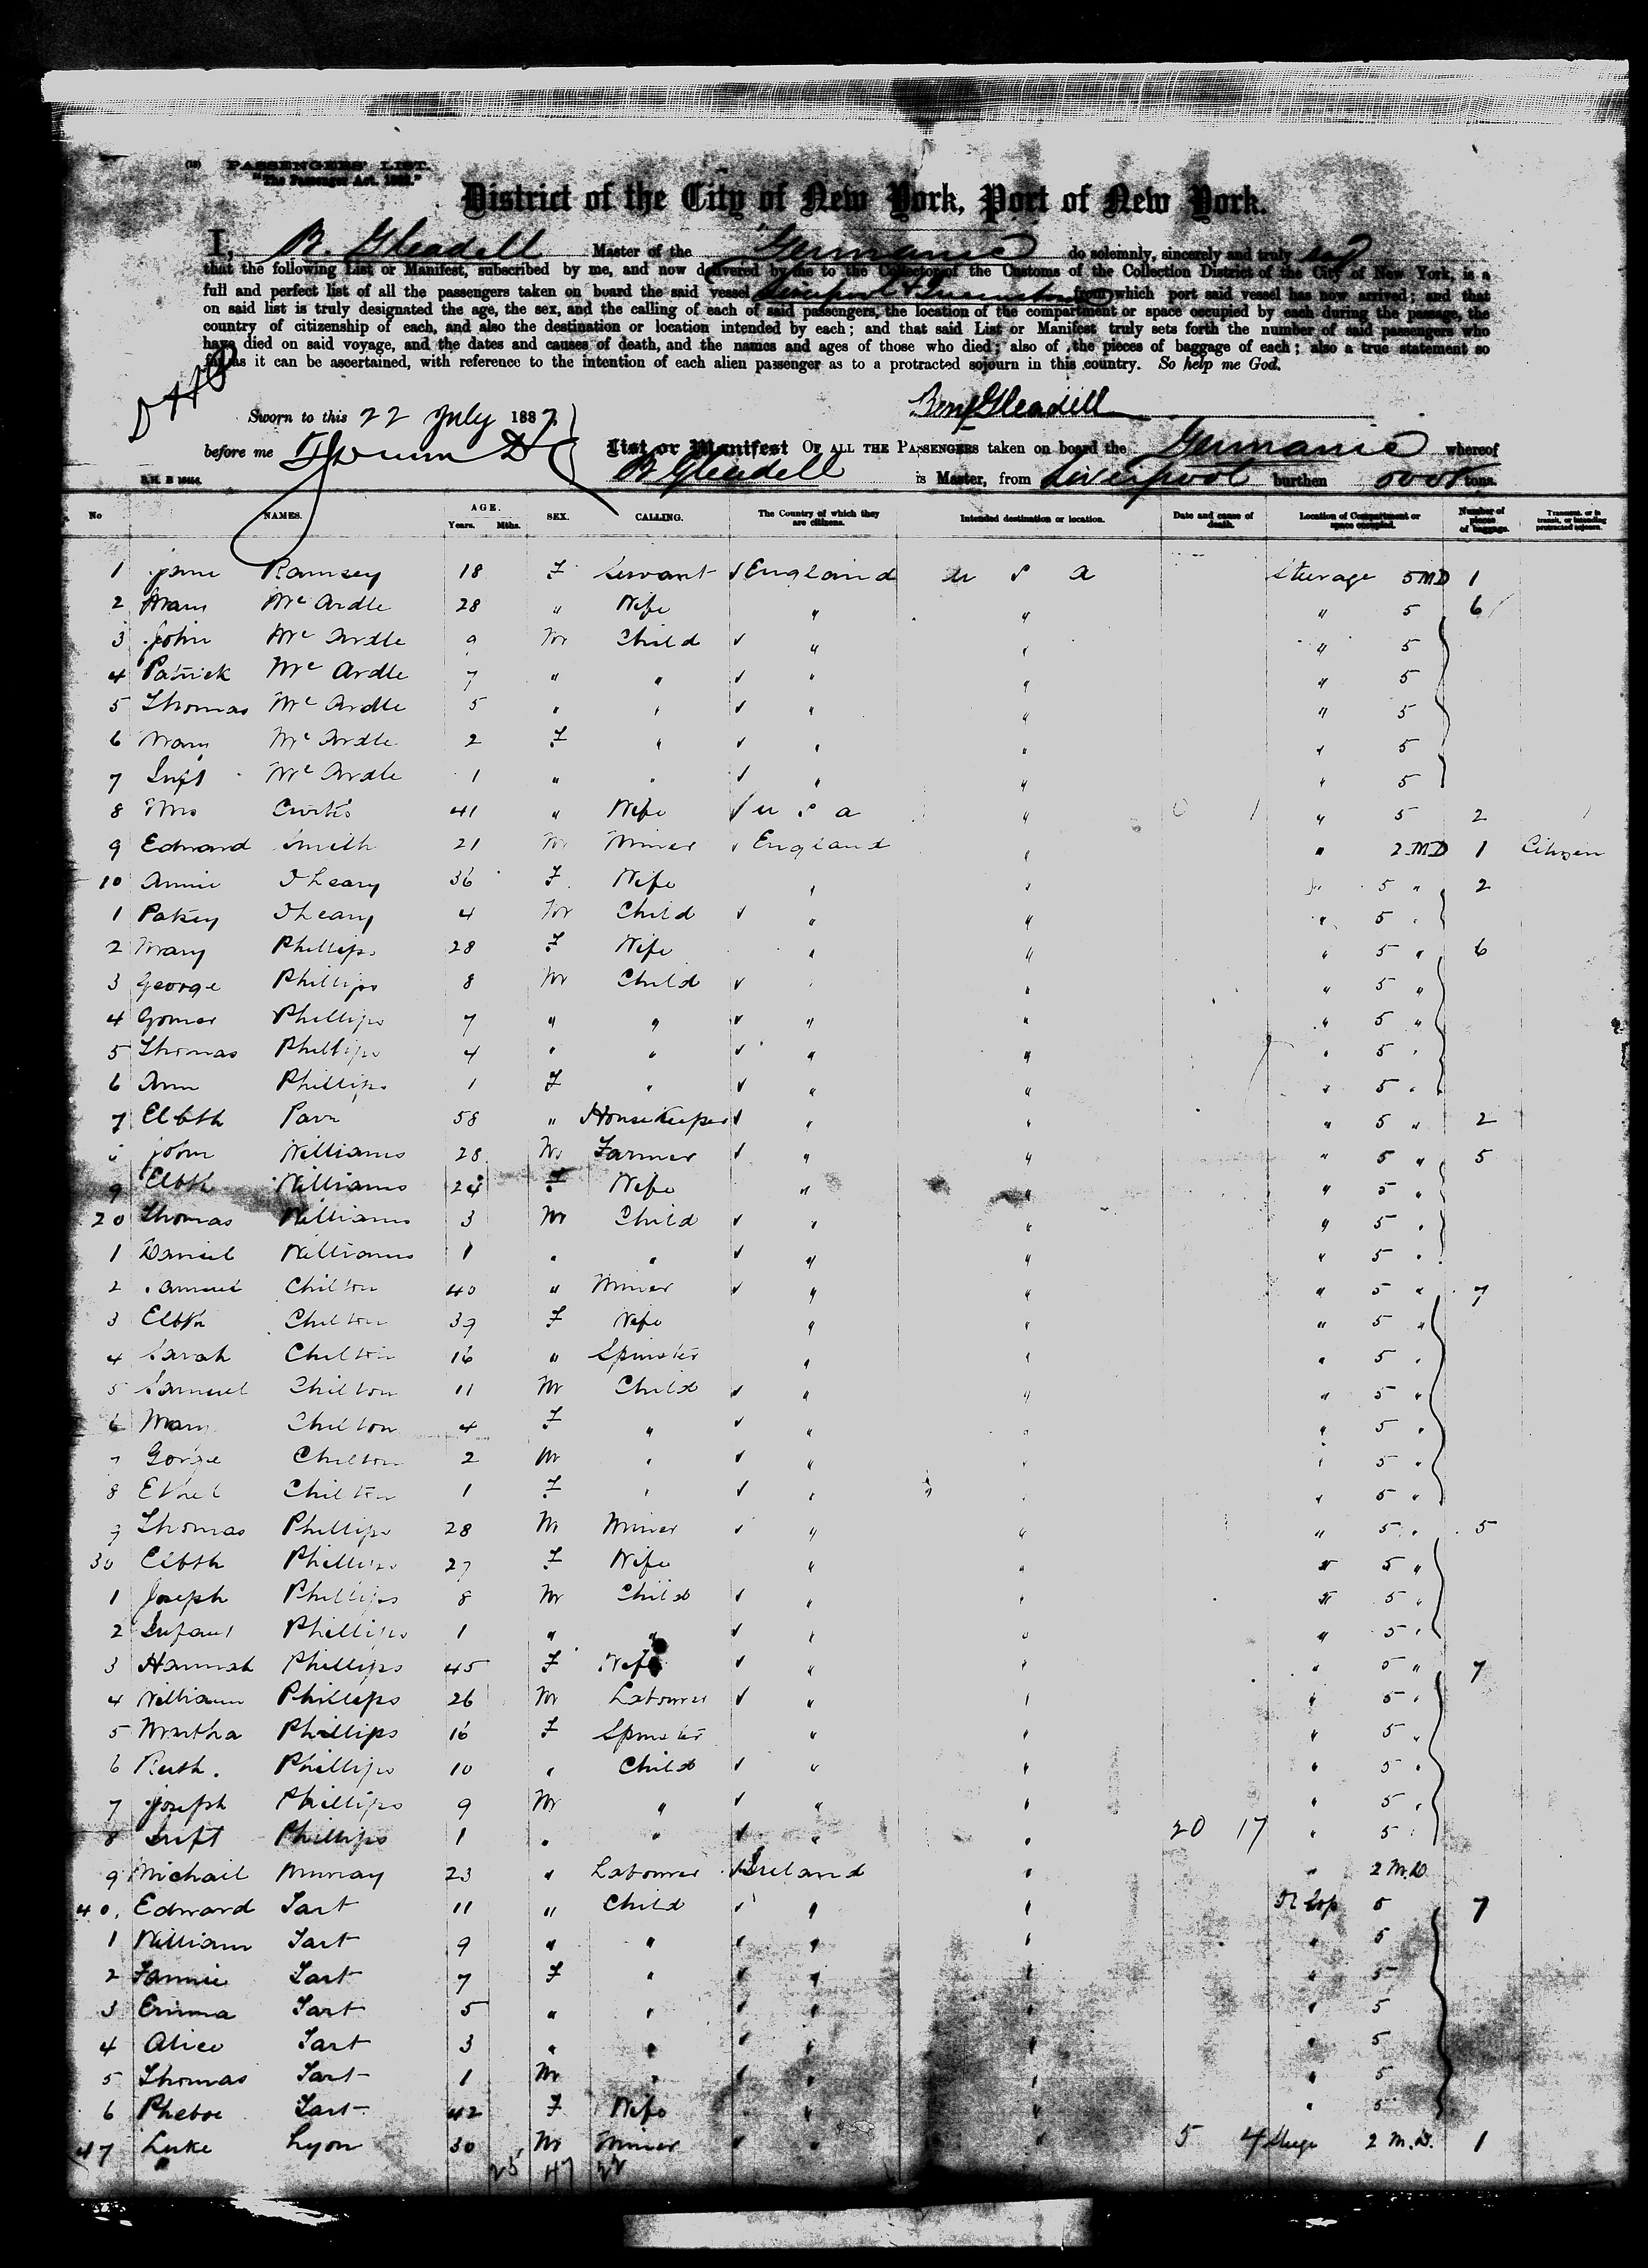 PASSENGERS' LIST.
"The Passenger Act, 1882."
District of the City of New York, Port of New York.
I, B. Gleadell Master of the Germanic do solemnly, sincerely and truly
that the following List or Manifest, subscribed by me, and now delivered by me to the Collector of the Customs of the Collection District of the City of New York, is a
full and perfect list of all the passengers taken on board the said vessel Liverpool & Queenstown from which port said vessel has now arrived; and that
on said list is truly designated the age, the sex, and the calling of each of said passengers, the location of the compartment or space occupied by each during the passage, the
country of citizenship of each, and also the destination or location intended by each; and that said List or Manifest truly sets forth the number of said passengers who
have died on said voyage, and the dates and causes of death, and the names and ages of those who died; also of the pieces of baggage of each; also a true statement so
far as it can be ascertained, with reference to the intention of each alien passenger as to a protracted sojourn in this country. So help me God.
Sworn to this 22 July 1887 Benj Gleadell
before me List or Manifest OF ALL THE PASSENGERS taken on board the Germanic whereof
B Gleadell is Master, from Liverpool burthen tons.
No NAMES. AGE. Years. Mths. SEX. CALLING. The Country of which they are citizens. Intended destination or location. Date and cause of death. Location of Compartment or space occupied. Number of pieces of baggage. Transient, or in transit, or intending protracted sojourn.
1 Jane Ramsey 18 F Servant England U S A Steerage 5 MD 1
2 Mary Mc Ardle 28 " Wife " " " 5 6
3 John Mc Ardle 9 M Child " " " 5
4 Patrick Mc Ardle 7 " " " " " 5
5 Thomas Mc Ardle 5 " " " " " 5
6 Mary Mc Ardle 2 F " " " " 5
7 Inft Mc Ardle 1 " " " " " 5
8 Mrs Curtis 41 " Wife U S A " " 5 2
9 Edward Smith 21 M Miner England " " 2 MD 1 Citizen
10 Annie O'Leary 36 F Wife " " " 5 " 2
1 Patsey O'Leary 4 M Child " " " 5 "
2 Mary Phillips 28 F Wife " " " 5 " 6
3 George Phillips 8 M Child " " " 5 "
4 Gomer Phillips 7 " " " " " 5 "
5 Thomas Phillips 4 " " " " " 5 "
6 Ann Phillips 1 F " " " " 5 "
7 Elbth 58 " HouseKeeper " " " 5 " 2
8 John Williams 28 M Farmer " " " 5 " 5
9 Elbth Williams 24 F Wife " " " 5 "
20 Thomas Williams 3 M Child " " " 5 "
1 Daniel Williams 1 " " " " " 5 "
2 Samuel Chilton 40 " Miner " " " 5 " 7
3 Elbth Chilton 39 F Wife " " " 5 "
4 Sarah Chilton 16 " Spinster " " " 5 "
5 Samuel Chilton 11 M Child " " " 5 "
6 Mary Chilton 4 F " " " " 5 "
7 Gorge Chilton 2 M " " " " 5 "
8 Ethel Chilton 1 F " " " " 5 "
9 Thomas Phillips 28 M Miner " " " 5 " 5
30 Elbth Phillips 27 F Wife " " " 5 "
1 Joseph Phillips 8 M Child " " " 5 "
2 Infant Phillips 1 " " " " " 5 "
3 Hannah Phillips 45 F Wife " " " 5 " 7
4 William Phillips 26 M Labourer " " " 5 "
5 Martha Phillips 16 F Spinster " " " 5 "
6 Ruth. Phillips 10 " Child " " " 5 "
7 Joseph Phillips 9 M " " " " 5 "
8 Inft Phillips 1 " " " " 20 17 " 5 "
9 Michail Murray 23 " Labourer Ireland " " 2 M.D.
40. Edward Tart 11 " Child " " 5 7
1 William Tart 9 " " " " " 5
2 Fannie Tart 7 F " " " " 5
3 Emma Tart 5 " " " " " 5
4 Alice Tart 3 " " " " " 5
5 Thomas Tart 1 M " " " " 5
6 Pheboe Tart 42 F Wife " " " 5
47 Luke Lyon 30 M Miner " " 5 4 Steege 2 M.D. 1
25 47 22